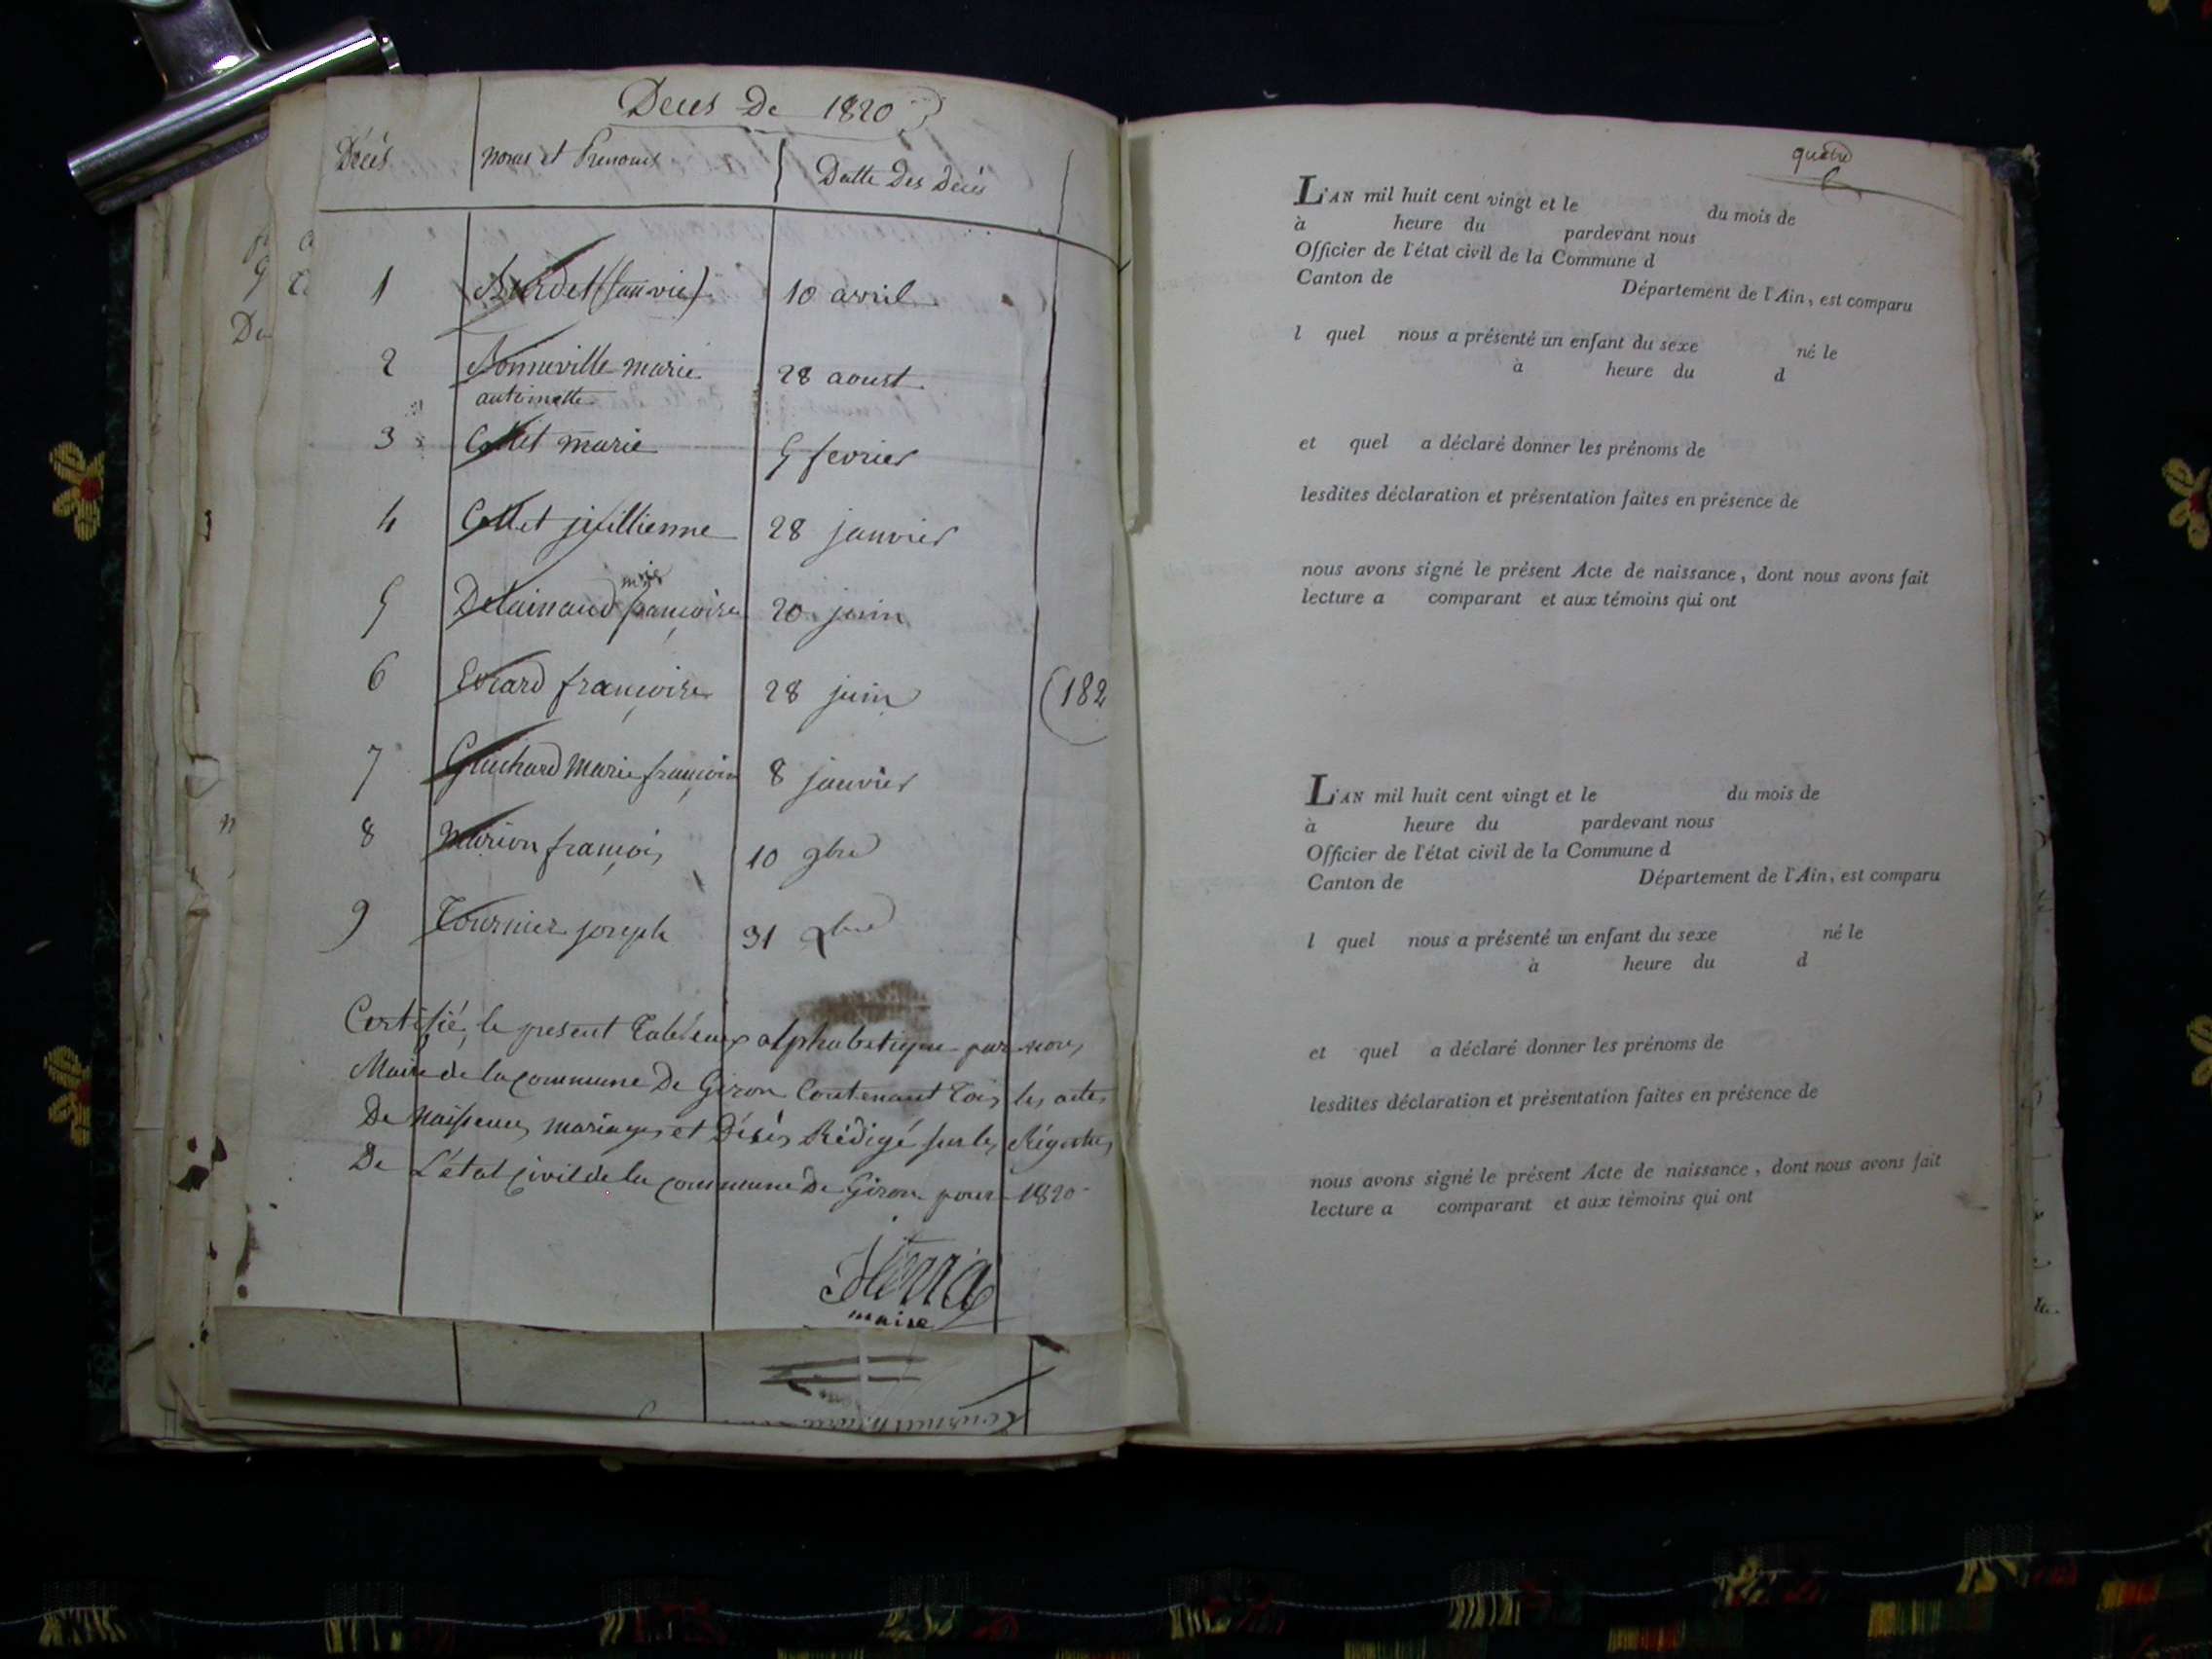 Deces De 1820
Décès
noms et Prenoms
Datte Des Décès
1 Burdet (sans vie) 10 avril
2 Bonneville marie 28 aoust
antoinette
3 Collet marie 5 fevrier
4 Collet jullienne 28 janvier
mie
5 Delainaud françoise 20 juin
6 Evrard françoise 28 juin
(182
7 Guichard Marie françoise 8 janvier
8 Marion françois 10 9bre
9 Tournier joseph 31
Certifié, le present Tableaux alphabetique par nous
Maire de la commune De Giron Contenant Tous les actes
De Naissences mariages et Décès Rédigé sur les Régistres
De L'état civil de la commune De Giron pour 1820
maire
quatre
L'AN mil huit cent vingt et le du mois de
à heure du pardevant nous
Officier de l'état civil de la Commune d
Canton de Département de l'Ain, est comparu
l quel nous a présenté un enfant du sexe né le
à heure du d
et quel a déclaré donner les prénoms de
lesdites déclaration et présentation faites en présence de
nous avons signé le présent Acte de naissance, dont nous avons fait
lecture a comparant et aux témoins qui ont
L'AN mil huit cent vingt et le du mois de
à heure du pardevant nous
Officier de l'état civil de la Commune d
Canton de Département de l'Ain, est comparu
l quel nous a présenté un enfant du sexe né le
à heure du d
et quel a déclaré donner les prénoms de
lesdites déclaration et présentation faites en présence de
nous avons signé le présent Acte de naissance, dont nous avons fait
lecture a comparant et aux témoins qui ont